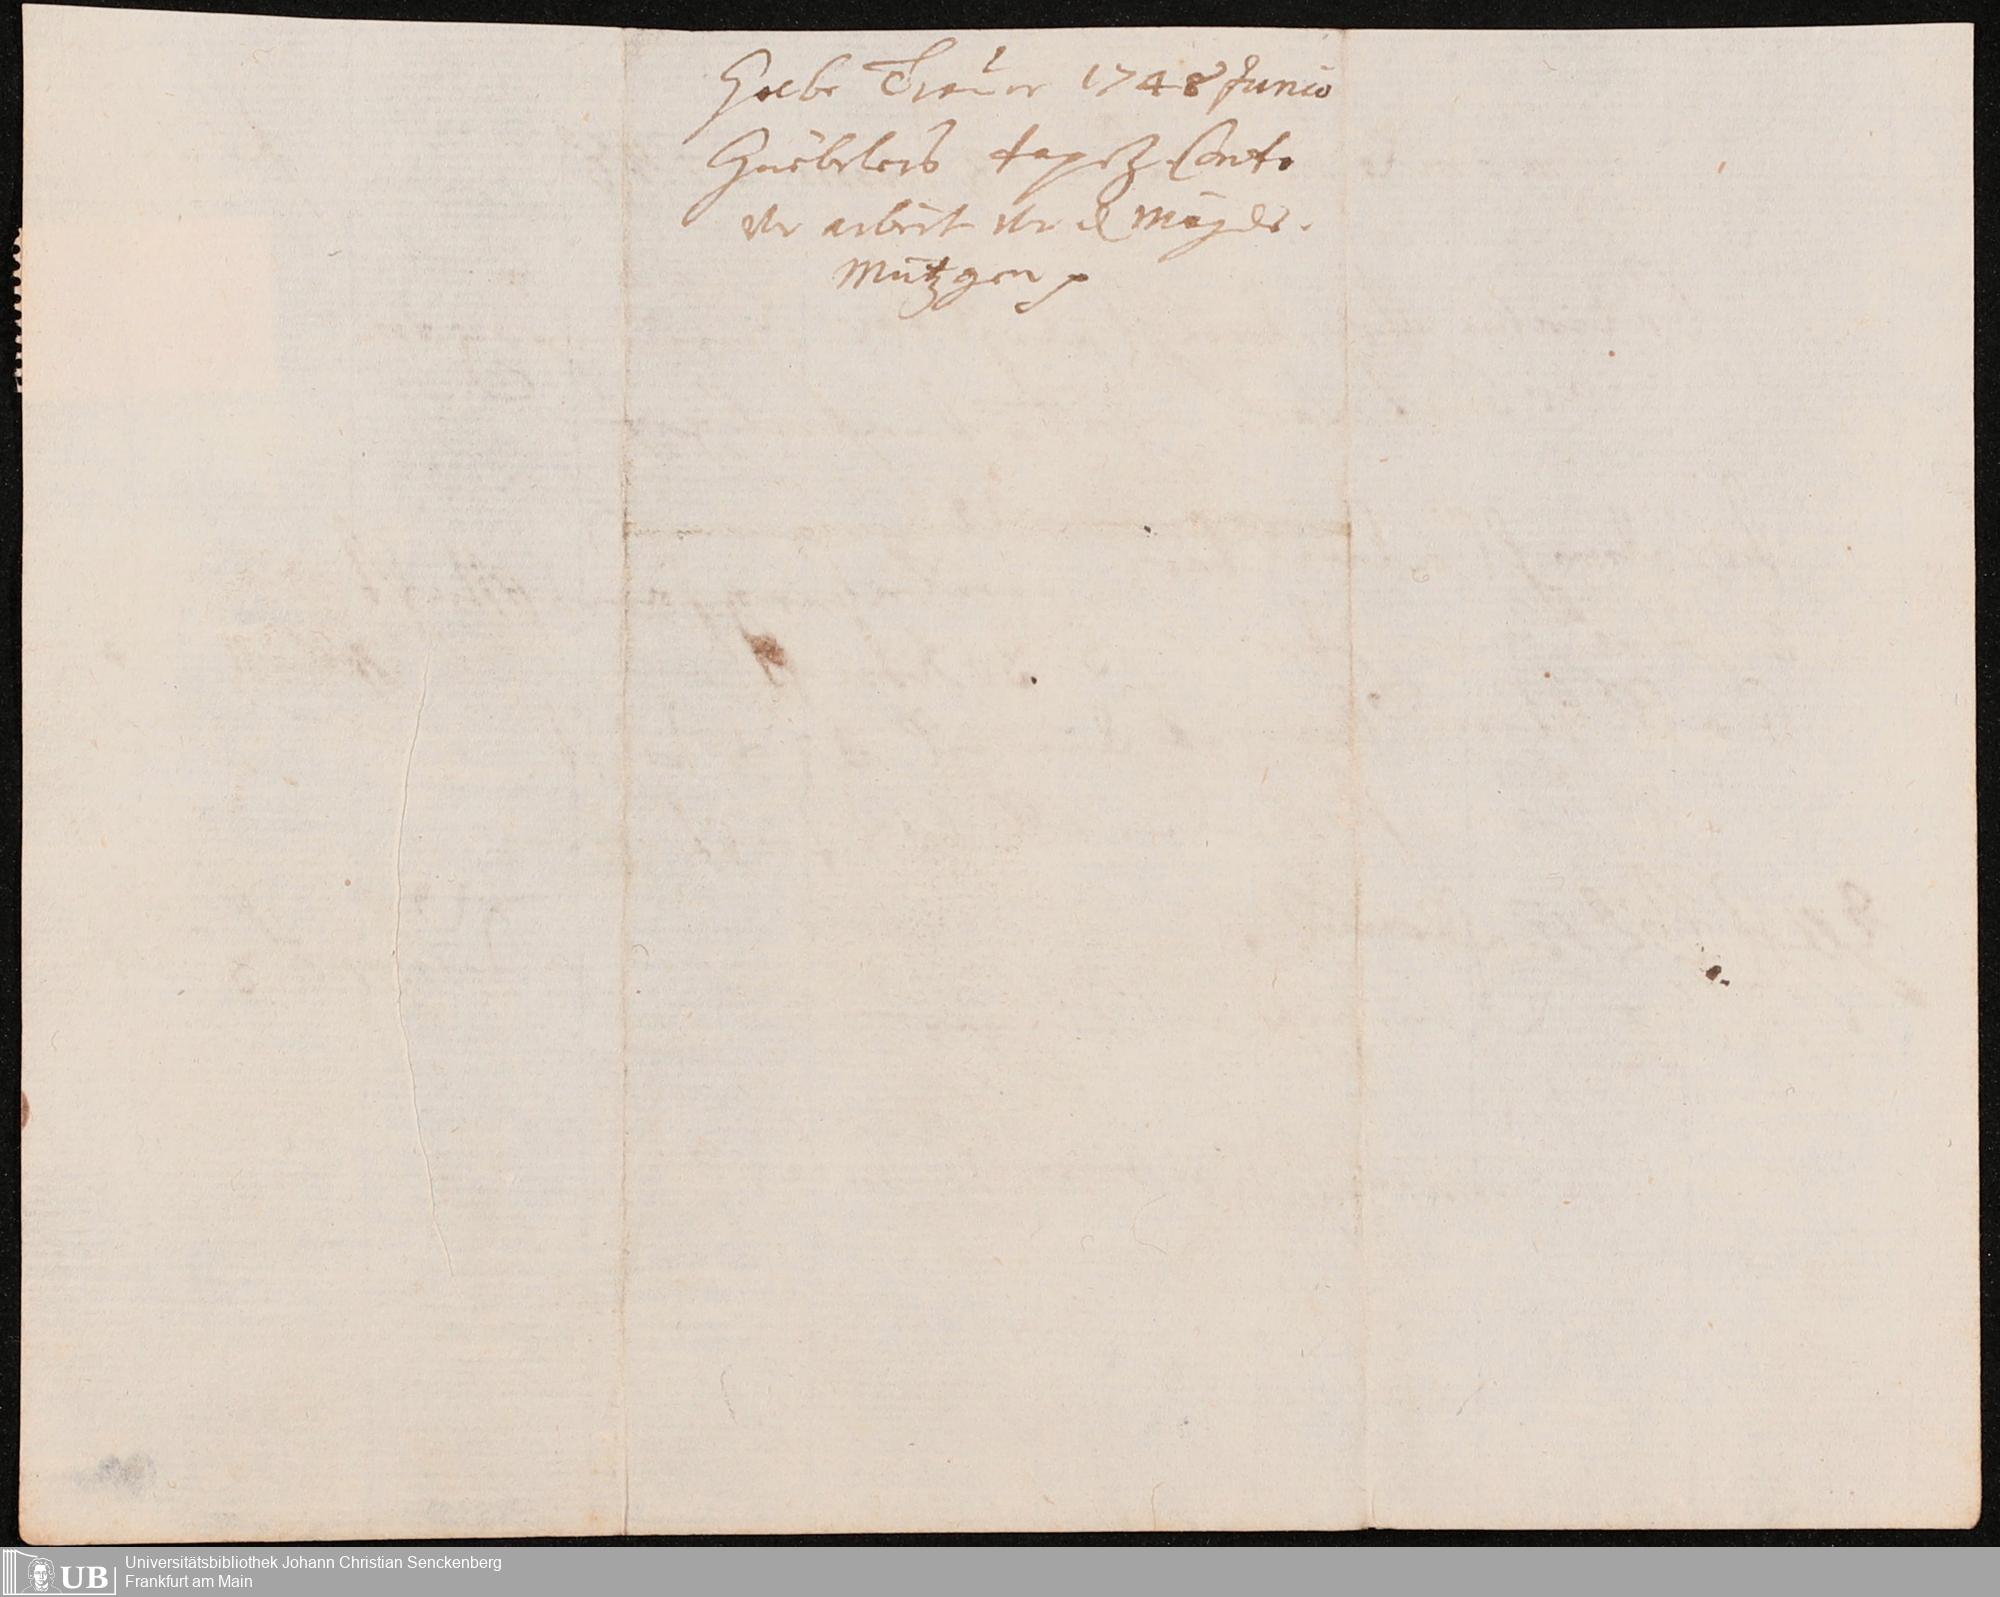 Halbe Trauer 1748 Junio
Gaëbelers tapez. Conto
vor arbeit vor d Mägde.
Mützgen p
UB
Universitätsbibliothek Johann Christian Senckenberg
Frankfurt am Main